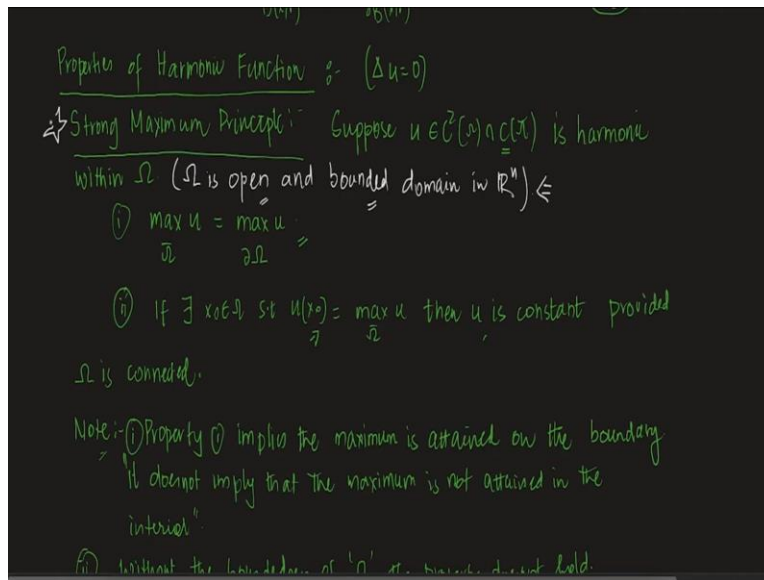 Properties of Harmonic Function :- (Δu=0)
Strong Maximum Principle:- Suppose u ∈ C²(Ω) ∩ C(Ω̅) is harmonic
within Ω (Ω is open and bounded domain in ℝⁿ) ⇐
(i) max u = max u
Ω̅ ∂Ω
(ii) If ∃ x₀∈Ω s.t u(x₀) = max u then u is constant provided
Ω̅
Ω is connected.
Note:- (i) Property (i) implies the maximum is attained on the boundary
"it doesnot imply that the maximum is not attained in the
interior"
(ii) Without the boundedness of 'Ω' the doesnot hold.